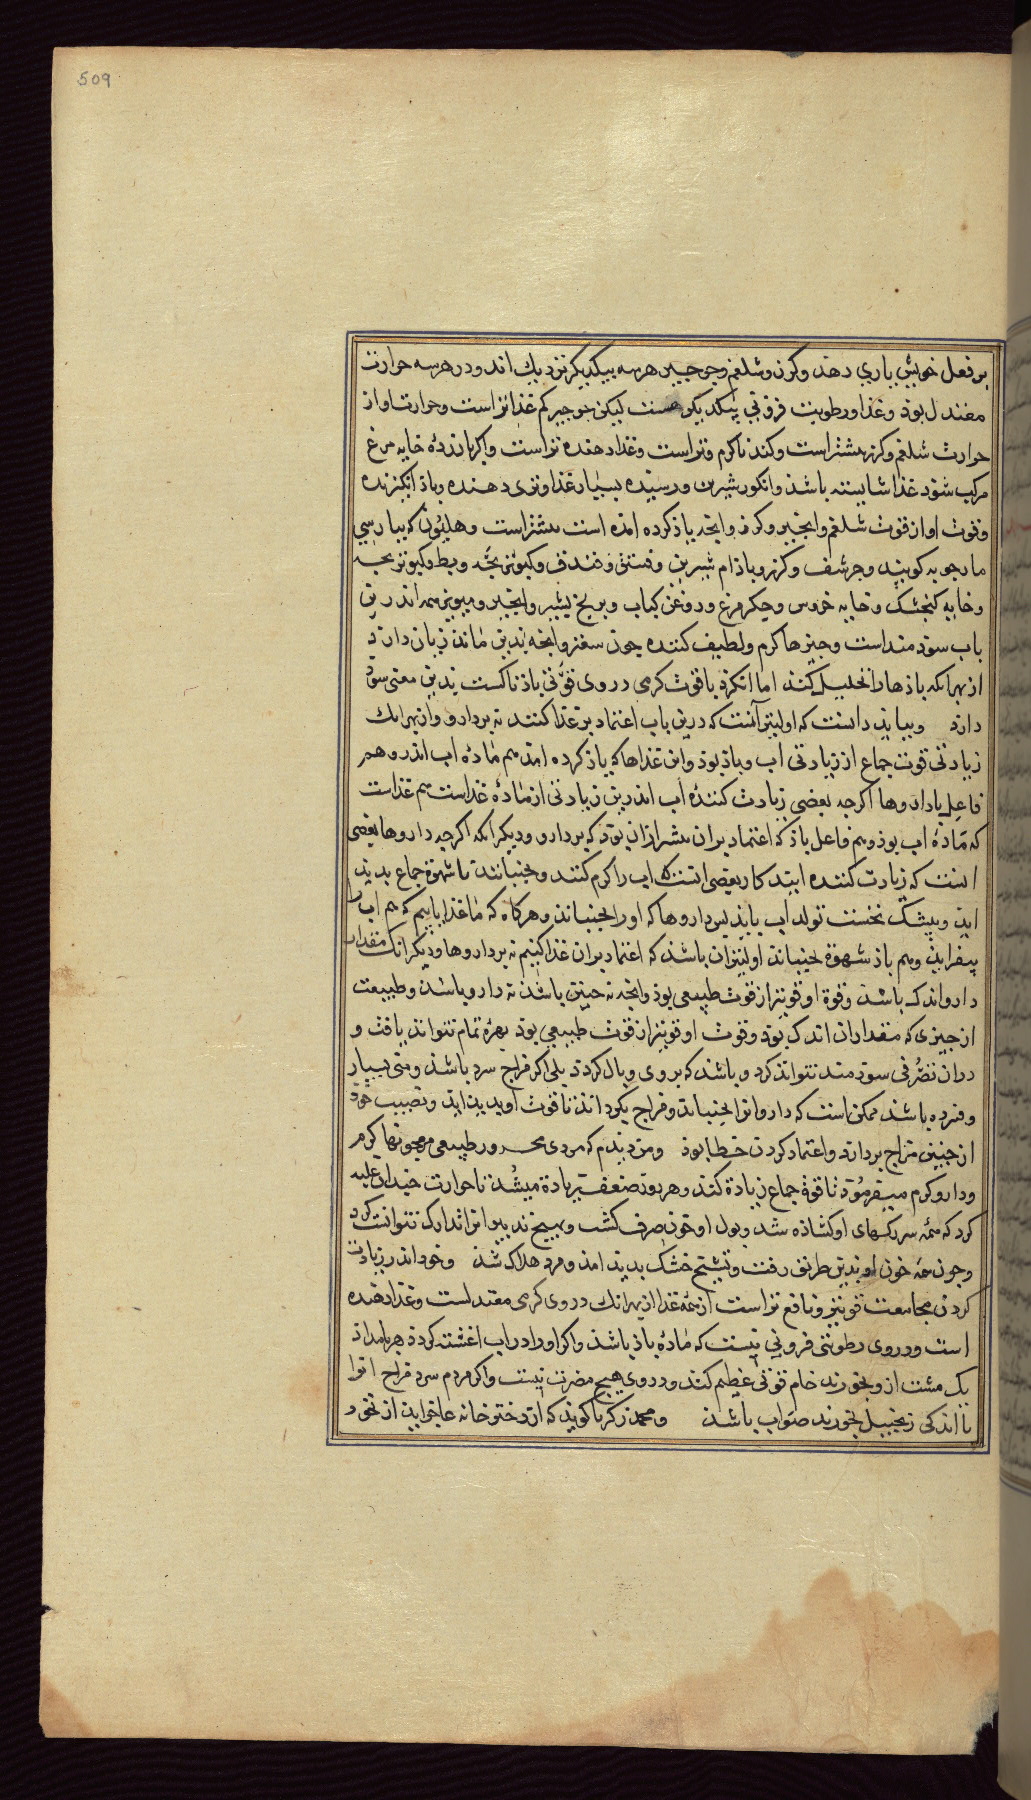 509
بر فعل خویش یاری دهد و کزر و شلغم و جرجیر هر سه بیکدیگر نزدیک اند و در هر سه حرارت
معتدل بود و غذا و رطوبت فزونی بیکدیگر هست لیکن جرجیر کم غذاتر است و حرارت او از
حرارت شلغم و کزر بیشتر است و کندنا گرم و تر است و غذا دهنده تر است و اگر با زرده خایه مرغ
مرکب شود غذا شایسته باشد و انگور شیرین و رسیده بسیار غذا و تری دهنده و باد انگیزنده
و قوت او از قوت شلغم و انجیر و کزر و انجه یاذ کرده امده است بیشتر است و هلیون که بپارسی
مارجوبه کویند و حرشف و کزر و باذام شیرین و فستق و فندق و کبوتر بچه و بط و کبوتر بچه
و خایه کنجشک و خایه خروس و جکر مرغ و روغن کباب و برنج بشیر و انجیر و میویز همه اندر ین
باب سوذ مند است و جیزها کرم و لطیف کننده جون سعتر و انجه بدین ماند زیان دارد
از بهر انکه باذها را تحلیل کند اما انکزد با قوت کرمی در وی قوتی باذناکست بدین معنی سوذ
دارد و ببایذ دانست که اولیتر آنست که درین باب اعتماد بر غذا کنند نه بر دارو و از بهر انک
زیادتی قوت جماع از زیادتی اب و باذ بوذ و این غذاها که یاذ کرده امد هم ماده اب اندرو هم
فاعل باد اندوها اکرجه بعضی زیادت کننده اب اندرین زیادتی از ماده غذاست هم غذاست
که ماده اب بوذ و هم فاعل باذ که اعتماد بران بیشتر ازان بوذ که بر دارو و دیکر انکه اکرجه داروها بعضی
انست که زیادت کننده ابتد کار بعضی انست که اب را کرم کنند و بجنبانند تا شهوة جماع بدید
اید و بیشک نخست تولد اب بایذ بس داروها که او را بجنباند و هرکاه که ما غذا یابیم که هم اب را
بیفزاید و هم باذ شهوة بجنباند اولیتر ان باشد که اعتماد بران غذا کنیم نه بر داروها و دیکر انک مقدار
دارو اندک باشد و قوة او قویتر از قوت طبیعی بوذ و انجه نه جنین باشد نه دارو باشد و طبیعت
از جیزی که مقدار ان اندک بوذ و قوت او قویتر از قوت طبیعی بوذ بهره تمام نتواند یافت و
دران تصرفی سوذ مند نتواند کرد و باشد که بر وی وبال کردد بلی اکر مزاج سرد باشد و منی بسیار
و فسرده باشد ممکن است که دارو انرا بجنباند و مزاج بکرداند تا قوت او بدید اید و طبیب خود
از جنین مزاج بر دارو اعتماد کردن خطا بوذ و من دیدم که مردی محرور طبیعی معجونها کرم
و دارو کرم میفرمود تا قوة جماع زیادة کند و هر روز ضعف زیادة میشد تا حرارت جندان غلبه
کرد که همه سر رکهای او کشاذه شد و بول او خون صرف کشت و بهیج تدبیر انرا تدارک نتوانست کرد
و جون همه خون او بدین طریق رفت و تشنج خشک بدید امد و مرد هلاک شد و نخود اندر زیادت
کردن مجامعت قویتر و نافع تر است از همه غذا از بهر انک در وی کرمی معتدلست و غذا دهنده
است و در وی رطوبتی فزونی نیست که ماده باذ باشد و اکر او را در اب اغشته کردد هر بامداد
یک مشت ازو بخورند خام قوتی عظیم کند و در وی هیج مضرت نیست و اکر مردم سرد مزاج انرا
با اندکی زنجبیل بخورند صواب باشد و محمد زکریا کوید که از دختر خانه عاجز ایذ از نخود